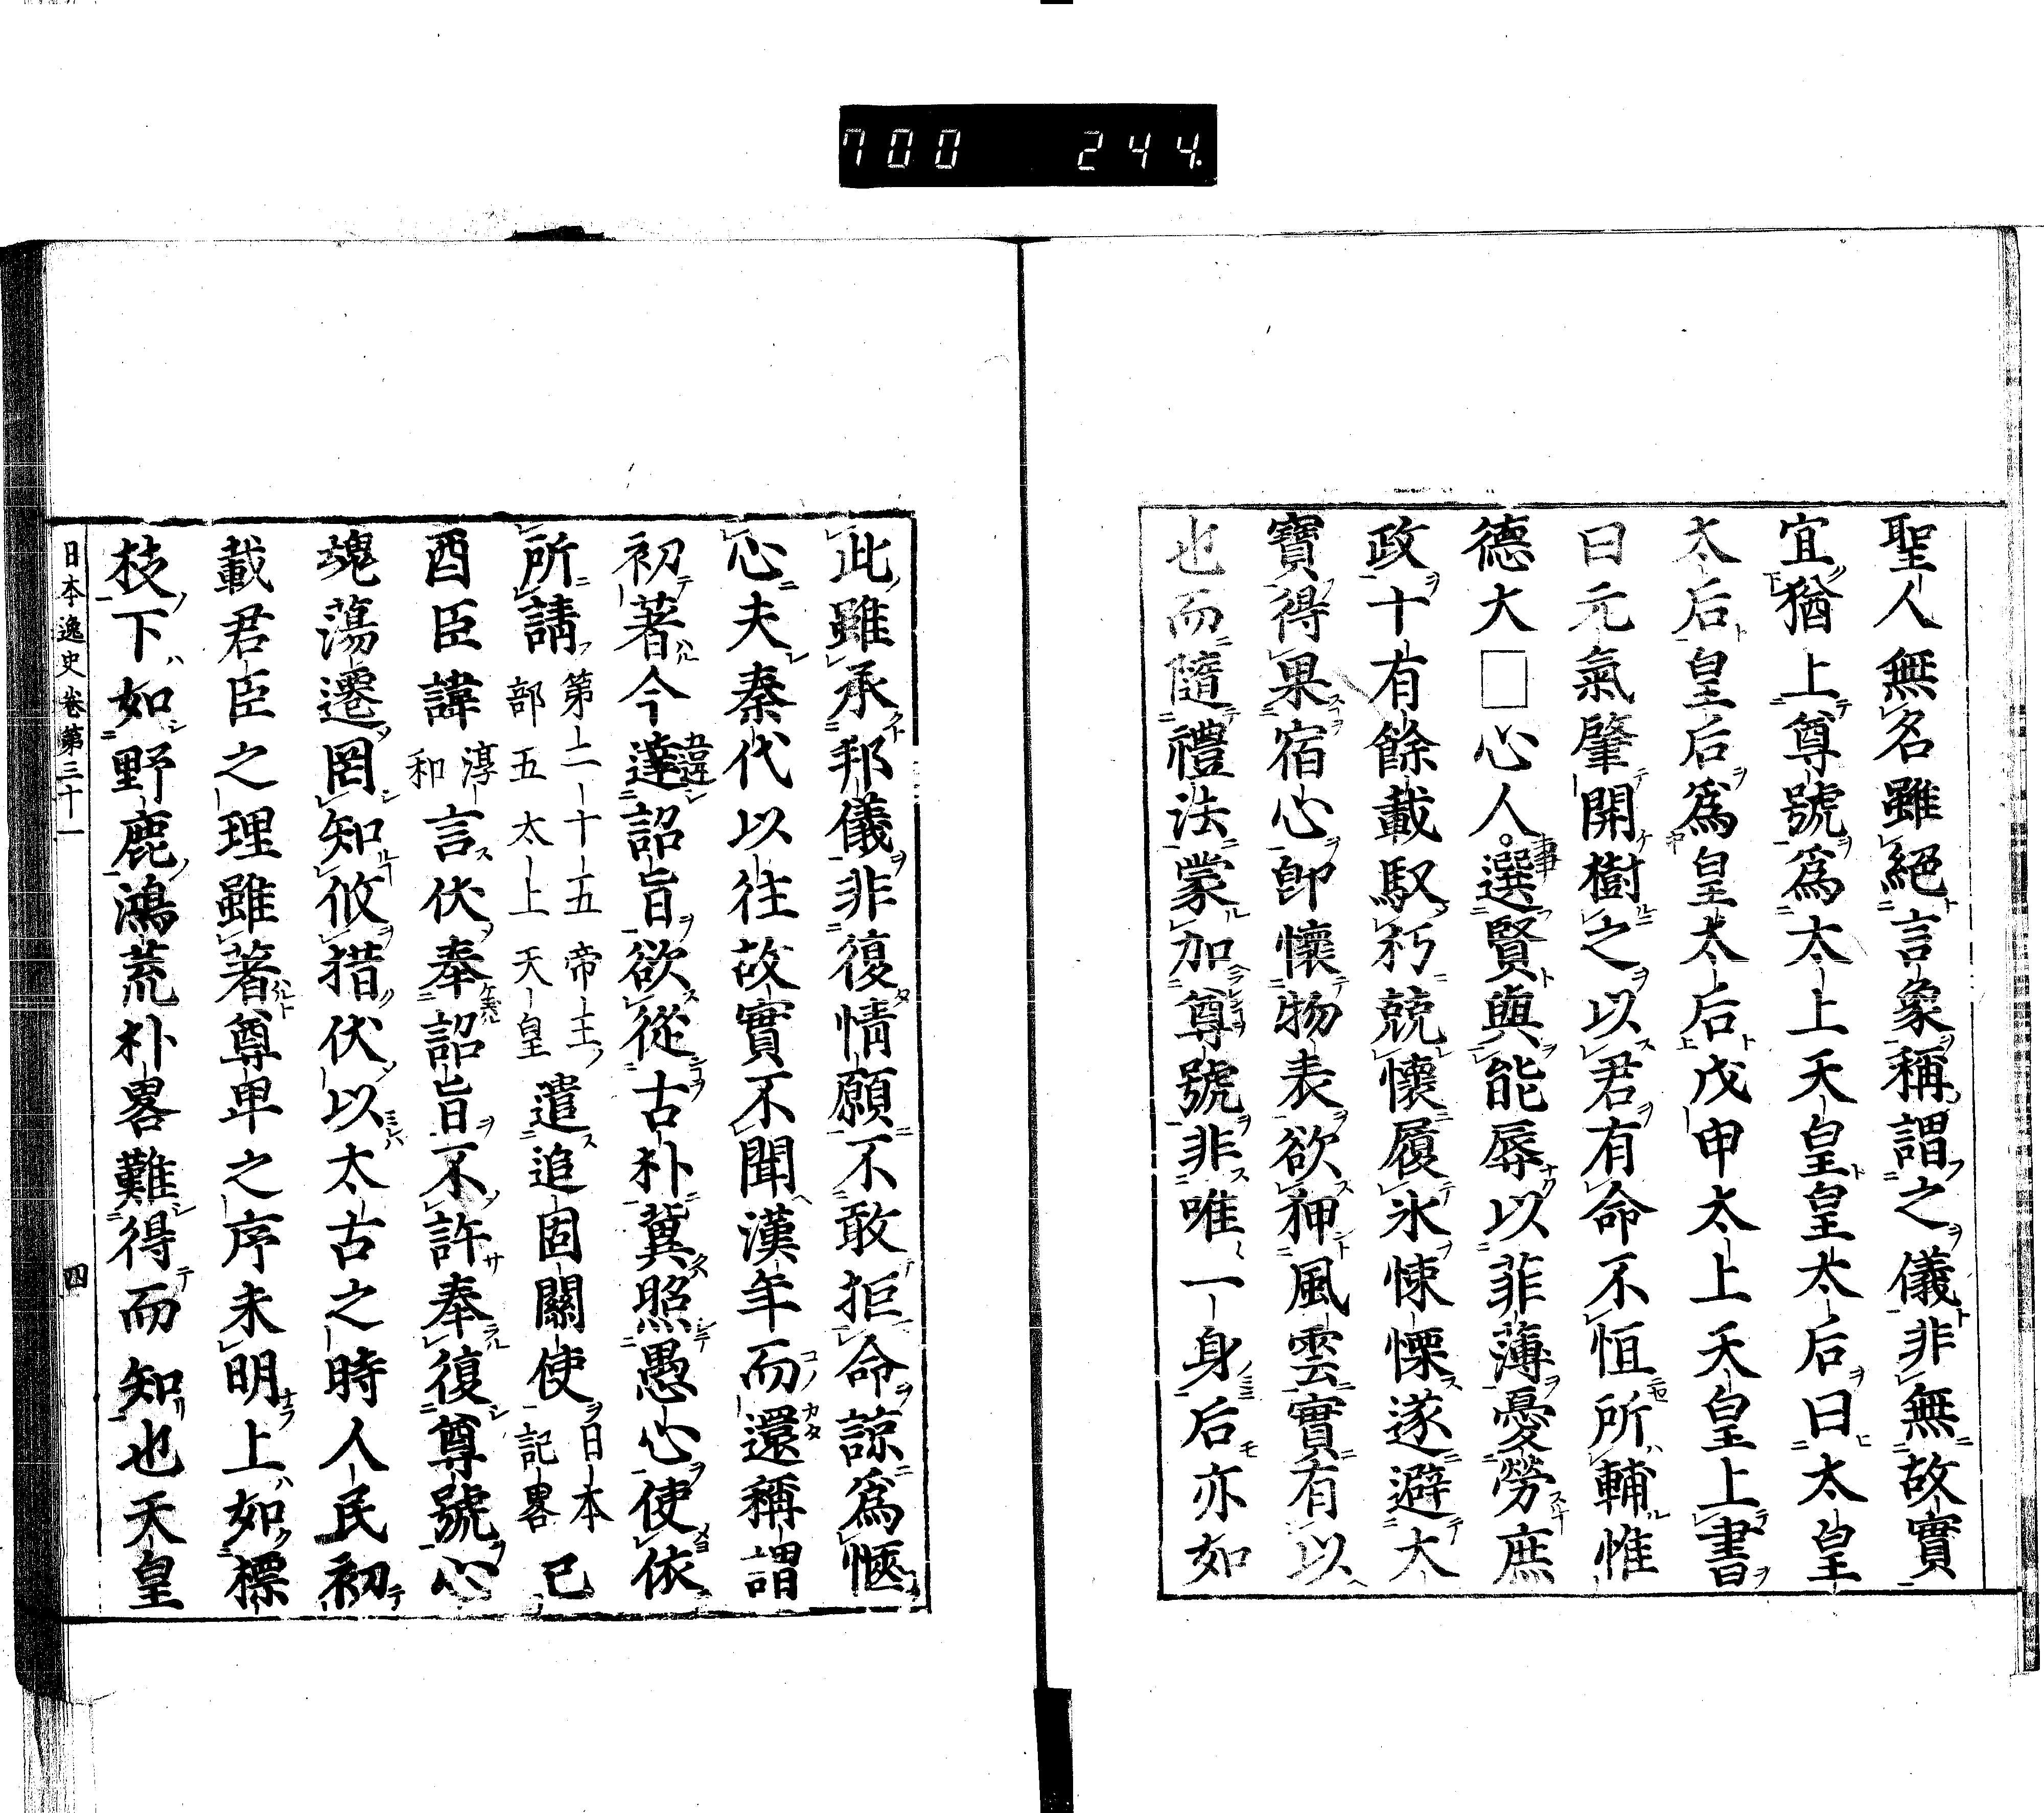 700 244.
聖人無名雖絕言象稱謂之儀非無故實
宜猶上尊號爲太上天皇皇太后曰太皇
太后皇后爲皇太后戊申太上天皇上書
曰元氣肇開樹之以君有命不恒所輔惟
德大□心人。選賢與能辱以菲薄憂勞庶
政十有餘載馭朽兢懷履氷悚慄遂避大
寶得果宿心卽懷物表欲狎風雲實有以
也而隨禮法蒙加尊號非唯一身后亦如
此雖承邦儀非復情願不敢拒命諒爲愜
心夫秦代以往故實不聞漢年而還稱謂
初著今達詔旨欲從古朴冀照愚心使依
所請第二十五帝王部五太上天皇遣追固關使日本記畧己
酉臣諱淳和言伏奉詔旨不許奉復尊號心
魂蕩遷罔知攸措伏以太古之時人民初
載君臣之理雖著尊卑之序未明上如標
枝下如野鹿鴻荒朴畧難得而知也天皇
日本逸史卷第三十一 四